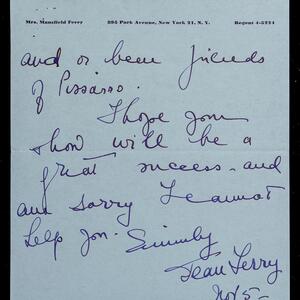 Mrs. Mansfield Ferry 895 Park Avenue, New York 21, N. Y. Regent 4-5224
and or been friends
of Pissarro.
I hope your
show will be a
great success - and
am sorry I cannot
help you. Sincerely
Jean Ferry
Nov 5 -